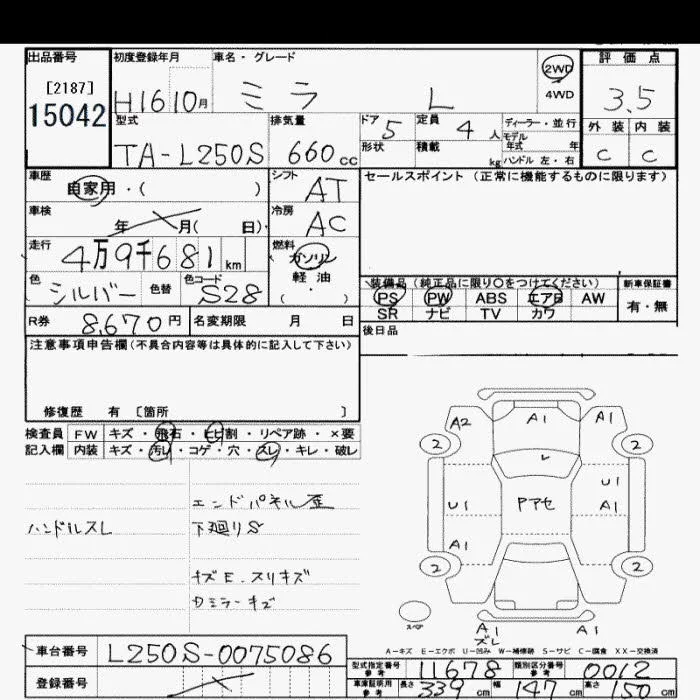 出品番号 初度登録年月 車名・グレード 2WD 評価点
[2187] H16 10月 ミラ L 4WD 3.5
15042 型式 排気量 ドア 5 定員 4人 ディーラー・並行 外装 内装
モデル年式 年
TA-L250S 660cc 形状 積載 kg ハンドル 左・右 C C
車歴 自家用・( ) シフト AT セールスポイント(正常に機能するものに限ります)
車検 年 月( 日) 冷房 AC
走行 4万9千681km 燃料 ガソリン
軽・油
色 シルバー 色替 色コード S28 ( ・ ) 装備品(純正品に限り○をつけてください) 新車保証書
PS PW ABS エアB AW 有・無
SR ナビ TV カワ
R券 8,670円 名変期限 月 日 後日品
注意事項申告欄(不具合内容等は具体的に記入して下さい)
修復歴 有 [箇所 ]
検査員 FW キズ・飛石・ヒビ割・リペア跡・×要
記入欄 内装 キズ・汚れ・コゲ・穴・スレ・キレ・破レ
A2 A1 A1
2 2
エンドパネル歪
ハンドルスレ 下廻りS
U1 Pアセ U1
A1
A1
2 2
キズE.スリキズ
Dミラーキズ
スペア A1 A1
ズレ
A-キズ E-エクボ U-凹み W-補修跡 S-サビ C-腐食 XX-交換済
車台番号 L250S-0075086 型式指定番号 参考 11678 類別区分番号 参考 0012
登録番号 車庫証明用 参考 長さ 339cm 幅 147cm 高さ 150cm